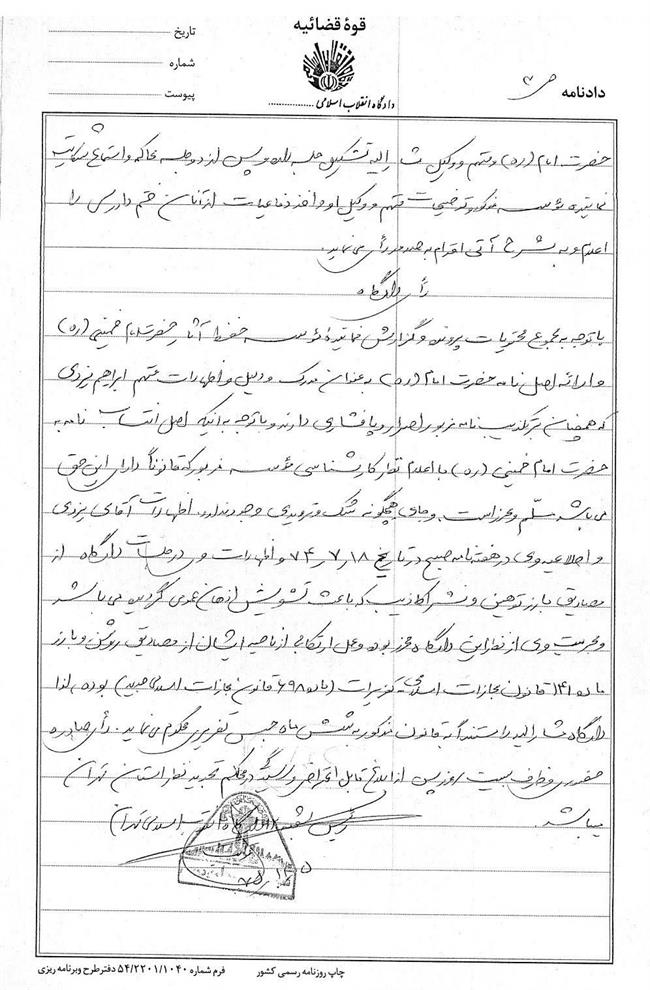 قوهٔ قضائیه
تاریخ
شماره
پیوست
دادگاه انقلاب اسلامی
دادنامه
حضرت امام (ره) و متهم و وکیل مشارالیه تشکیل جلسه داده و پس از دو جلسه محاکمه و استماع شکایت
نماینده مؤسسه مذکور و توضیحات متهم و وکیل او و اخذ دفاعیات از آنان ختم دادرسی را
اعلام و به شرح آتی اقدام به صدور رأی می نماید.
رأی دادگاه
با توجه به مجموع محتویات پرونده و گزارش نماینده مؤسسه حفظ آثار حضرت امام خمینی (ره)
و ارائه اصل نامه حضرت امام (ره) به عنوان مدرک و دلیل و اظهارات متهم ابراهیم یزدی
که همچنان بر تکذیب نامه مزبور اصرار و پافشاری دارند و با توجه به اینکه اصل انتساب نامه به
حضرت امام خمینی (ره) با اعلام نظر کارشناسی مؤسسه مزبور که قانوناً دارای این حق
می باشد مسلّم و محرز است و جای هیچگونه شک و تردیدی وجود ندارد. اظهارات آقای یزدی
و اطلاعیه وی در هفته نامه صبح در تاریخ ۷۴٫۷٫۱۸ و اظهارات وی در جلسات دادگاه از
مصادیق بارز توهین و نشر اکاذیب که باعث تشویش اذهان عمومی گردیده می باشد
و مجرمیت وی از نظر این دادگاه محرز بوده و عمل ارتکابی از ناحیه ایشان از مصادیق روشن و بارز
ماده ۱۴۱ قانون مجازات اسلامی تعزیرات (ماده ۶۹۸ قانون مجازات اسلامی جدید) بوده، لذا
دادگاه مشارالیه را مستنداً به قانون مذکور به شش ماه حبس تعزیری محکوم می نماید. رأی صادره
حضوری و ظرف بیست روز پس از ابلاغ قابل اعتراض و رسیدگی در محاکم تجدید نظر استان تهران
میباشد.
رئیس شعبه اول دادگاه انقلاب اسلامی تهران
چاپ روزنامه رسمی کشور
فرم شماره ۵۴/۲۲۰۱/۱۰۴۰ دفتر طرح و برنامه ریزی